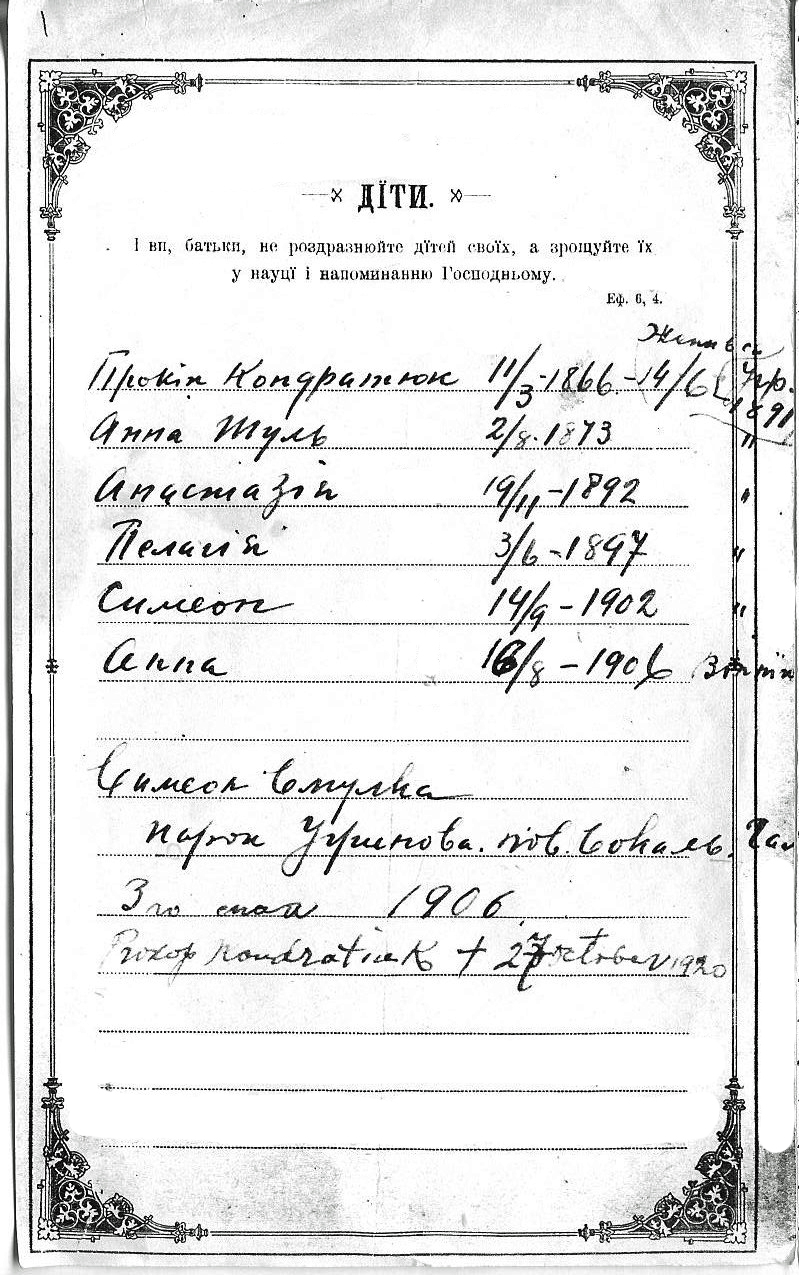 ДЇТИ.
І ви, батьки, не роздразнюйте дїтей своїх, а зрощуйте їх
у науцї і напоминанню Господньому.
Еф. 6, 4.
Прокіп Кондратюк 11/3-1866.-14/6
1891
Анна Жуль 2/8.1873 "
Анастазія 19/11-1892 "
Пелагія 3/6-1897 "
Симеон 14/9-1902 "
Анна 16/8-1906
Симеон Смулка
парох Угринова. пов. Сокаль.
3го мая 1906.
Prokop Kondratiuk + 27 October 1920